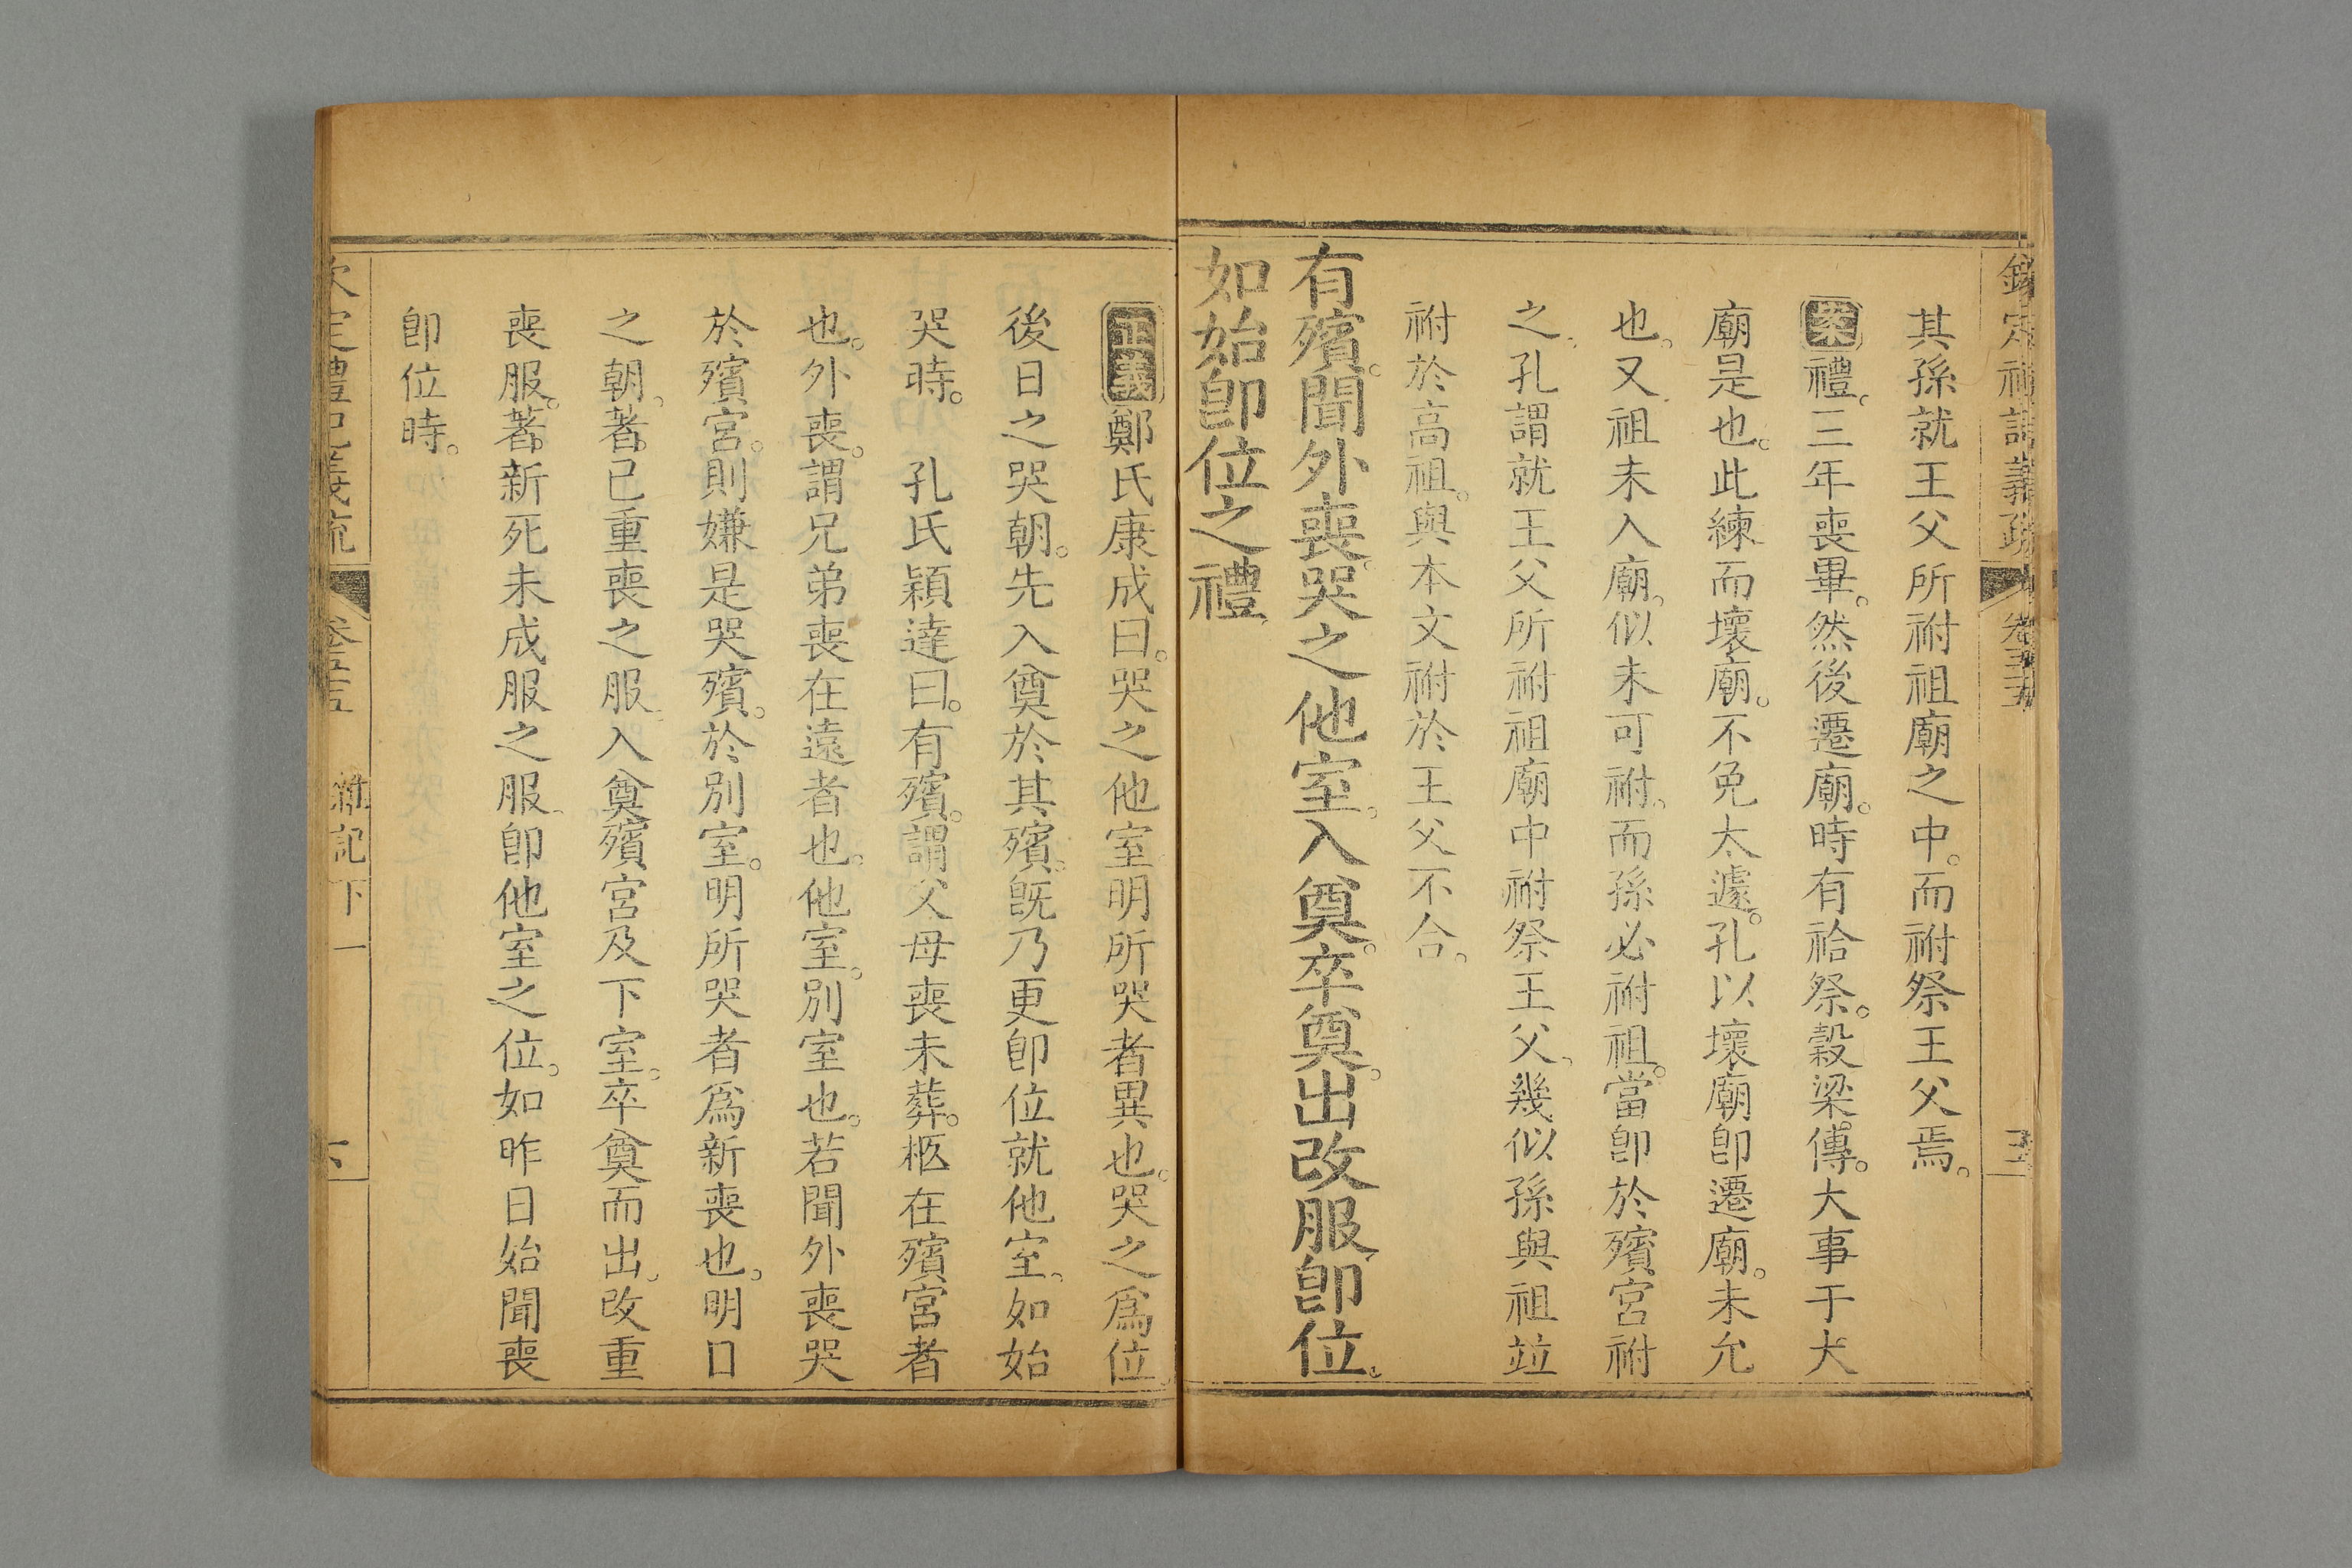 其孫就王父所祔祖廟之中。而祔祭王父焉。
案禮。三年喪畢。然後遷廟。時有祫祭。穀梁傳。大事于大
廟是也。此練而壞廟。不免太遽。孔以壞廟卽遷廟。未允
也。又祖未入廟。似未可祔。而孫必祔祖。當卽於殯宮祔
之。孔謂就王父所祔祖廟中祔祭王父。幾似孫與祖竝
祔於高祖。與本文祔於王父不合。
有殯。聞外喪。哭之他室。入奠。卒奠。出改服卽位。
如始卽位之禮
正義鄭氏康成曰。哭之他室明所哭者異也。哭之爲位。
後日之哭朝。先入奠於其殯。旣乃更卽位就他室。如始
哭時。 孔氏穎達曰。有殯。謂父母喪未葬。柩在殯宮者
也。外喪。謂兄弟喪在遠者也。他室。別室也。若聞外喪哭
於殯宮。則嫌是哭殯。於別室。明所哭者爲新喪也。明日
之朝。著已重喪之服。入奠殯宮及下室。卒奠而出。改重
喪服。著新死未成服之服。卽他室之位。如昨日始聞喪
卽位時。
欽定禮記義疏 卷五十五 雜記下一